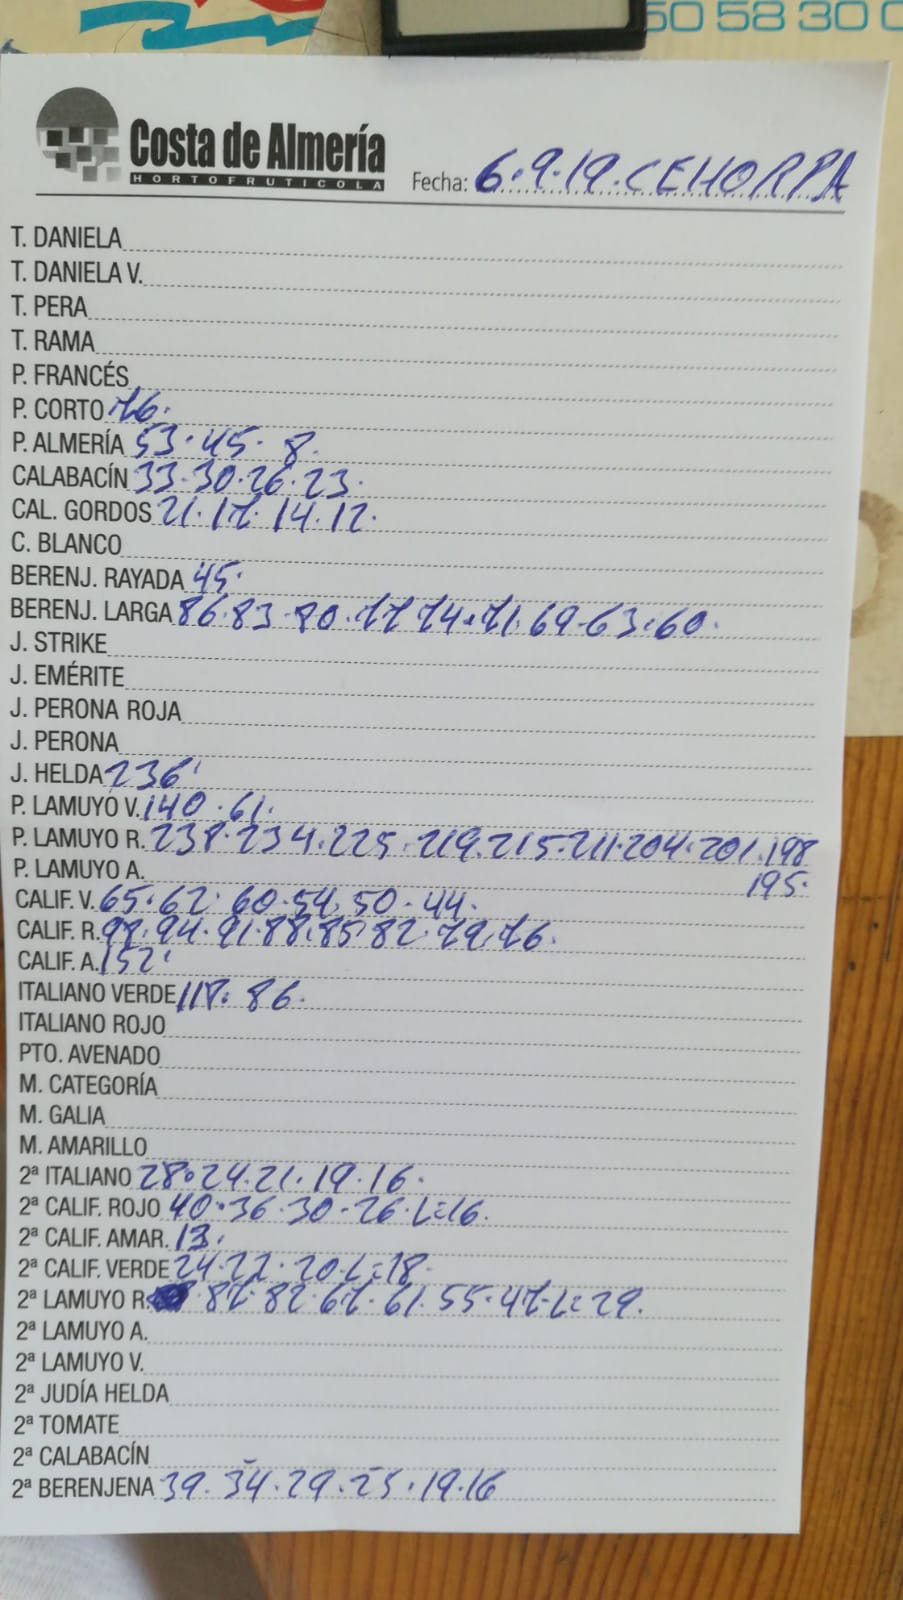 50 58 30 0
Costa de Almería
HORTOFRUTICOLA
Fecha: 6.9.19.CEHORPA
T. DANIELA
T. DANIELA V.
T. PERA
T. RAMA
P. FRANCÉS
P. CORTO 76.
P. ALMERÍA 53.45.8.
CALABACÍN 33.30.26.23.
CAL. GORDOS 21.17.14.12.
C. BLANCO
BERENJ. RAYADA 45.
BERENJ. LARGA 86.83.80.77.74.71.69.63.60.
J. STRIKE
J. EMÉRITE
J. PERONA ROJA
J. PERONA
J. HELDA 236.
P. LAMUYO V. 140.61.
P. LAMUYO R. 238.234.225.219.215.211.204.201.198
P. LAMUYO A. 195.
CALIF. V. 65.62.60.54.50.44.
CALIF. R. 99.94.91.88.85.82.79.76.
CALIF. A. 152.
ITALIANO VERDE 118.86.
ITALIANO ROJO
PTO. AVENADO
M. CATEGORÍA
M. GALIA
M. AMARILLO
2ª ITALIANO 28.24.21.19.16.
2ª CALIF. ROJO 40.36.30.26.L=16.
2ª CALIF. AMAR. 13.
2ª CALIF. VERDE 24.22.20.L=18.
2ª LAMUYO R. 87.82.67.61.55.47.L=29.
2ª LAMUYO A.
2ª LAMUYO V.
2ª JUDÍA HELDA
2ª TOMATE
2ª CALABACÍN
2ª BERENJENA 39.34.29.25.19.16